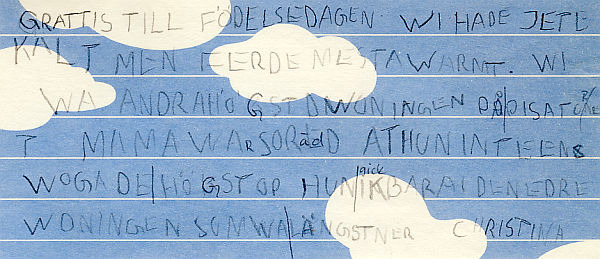 GRATTIS TILL FÖDELSEDAGEN WI HADE JETE
KALT MEN FERDE MESTA WARMT. WI
WA ANDRAHÖGSTDWONINGEN PÅ/PISATO
T MAMA WARSORÄDD ATHUNINTEENS
WOGADE/HÖGST OP HUN/gick IKBARAIDENEDRE
WONINGEN SUMWA/LÄNGSTNER CHRISTINA